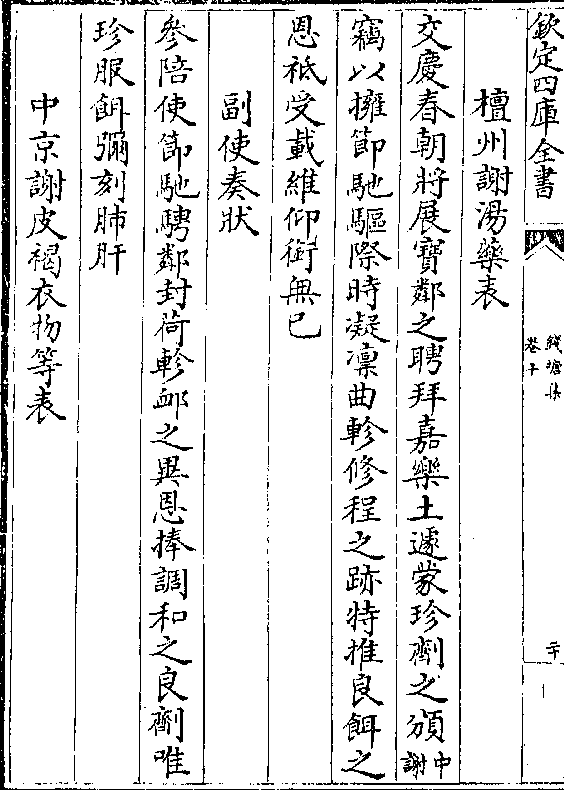 欽定四庫全書
錢塘集
卷十
二十
檀州謝湯藥表
交慶春朝將展寶鄰之聘拜嘉樂土遽蒙珍劑之頒中謝
竊以擁節馳驅際時凝凛曲軫修程之跡特推良餌之
恩祇受載維仰銜無已
副使奏狀
參陪使節馳騁鄰封荷軫䘏之異恩捧調和之良劑唯
珍服餌彌刻肺肝
中京謝皮褐衣物等表